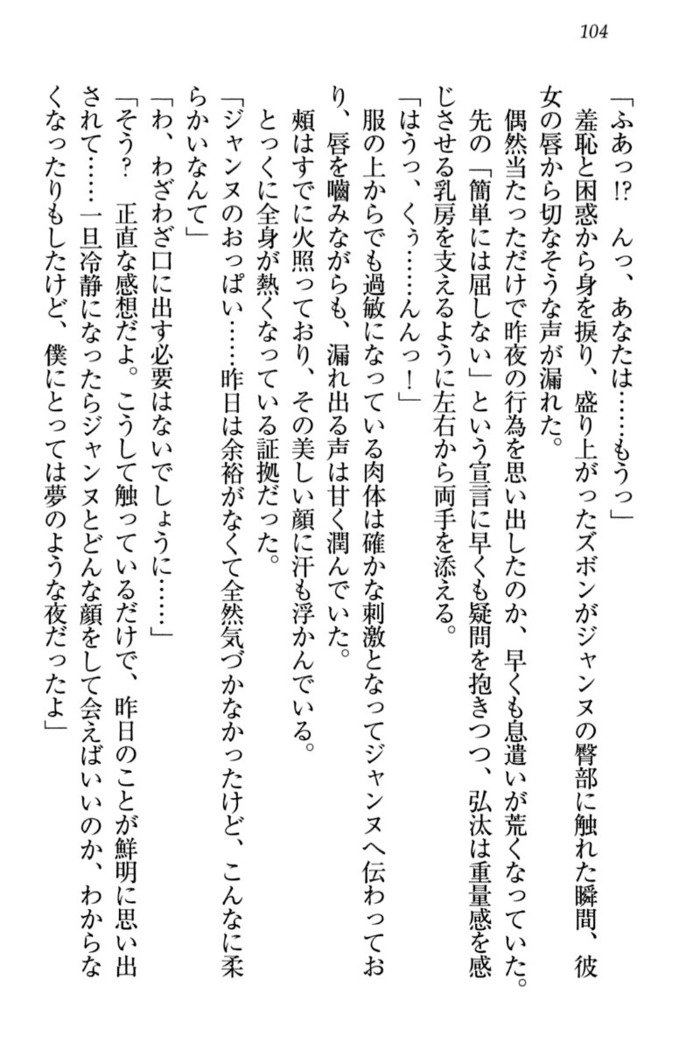 104
「ふあっ!?　んっ、あなたは……もうっ」
　羞恥と困惑から身を捩り、盛り上がったズボンがジャンヌの臀部に触れた瞬間、彼
女の唇から切なそうな声が漏れた。
　偶然当たっただけで昨夜の行為を思い出したのか、早くも息遣いが荒くなっていた。
　先の「簡単には屈しない」という宣言に早くも疑問を抱きつつ、弘汰は重量感を感
じさせる乳房を支えるように左右から両手を添える。
「はうっ、くぅ……んんっ！」
　服の上からでも過敏になっている肉体は確かな刺激となってジャンヌへ伝わってお
り、唇を嚙みながらも、漏れ出る声は甘く潤んでいた。
　頰はすでに火照っており、その美しい顔に汗も浮かんでいる。
　とっくに全身が熱くなっている証拠だった。
「ジャンヌのおっぱい……昨日は余裕がなくて全然気づかなかったけど、こんなに柔
らかいなんて」
「わ、わざわざ口に出す必要はないでしょうに……」
「そう？　正直な感想だよ。こうして触っているだけで、昨日のことが鮮明に思い出
されて……一旦冷静になったらジャンヌとどんな顔をして会えばいいのか、わからな
くなったりもしたけど、僕にとっては夢のような夜だったよ」